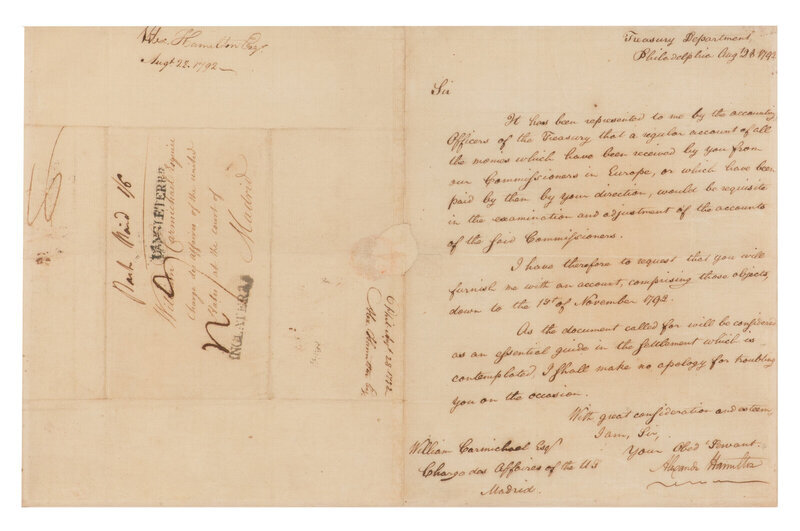 Alex. Hamilton Esqr.
Augt 28. 1792
Treasury Department
Philadelphia Augt 28 1792
Sir
It has been represented to me by the accounting
Officers of the Treasury that a regular account of all
the monies which have been received by you from
our Commissioners in Europe, or which have been
paid by them by your direction, would be requisite
in the examination and adjustment of the accounts
of the said Commissioners.
I have therefore to request that you will
furnish me with an account, comprising those objects,
down to the 1st of November 1792.
As the document called for will be considered
as an essential guide in the Settlement which is
contemplated, I shall make no apology for troubling
you on the occasion.
With great consideration and esteem,
I am, Sir,
Your Obed Servant
Alexander Hamilton
William Carmichael Esqr
Charge des Affaires of the US
Madrid.
Paid 1/6
William Carmichael Esquire
Charge des Affaires of the United
States at the court of
Madrid
D'ANGLETERRE
INGLATERRA
28 1792
Alex. Hamilton Esq